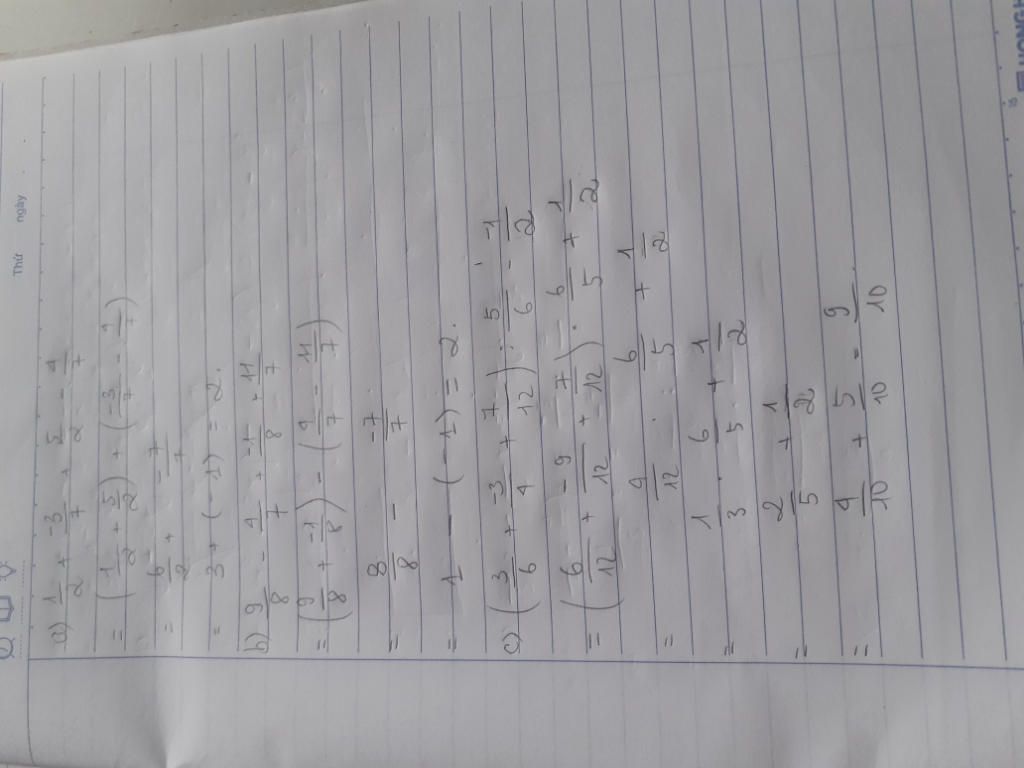 Thứ ngày
a) 1/2 + -3/7 + 5/2 - 4/7
= (1/2 + 5/2) + (-3/7 - 4/7)
= 6/2 + -7/7
= 3 + (-1) = 2.
b) 9/8 - 4/7 + -1/8 + 11/7
= (9/8 + -1/8) - (4/7 - 11/7)
= 8/8 - -7/7
= 1 - (-1) = 2.
c) (3/6 + -3/4 + 7/12) : 5/6 - -1/2
= (6/12 + -9/12 + 7/12) . 6/5 + 1/2
= 4/12 . 6/5 + 1/2
= 1/3 . 6/5 + 1/2
= 2/5 + 1/2
= 4/10 + 5/10 = 9/10